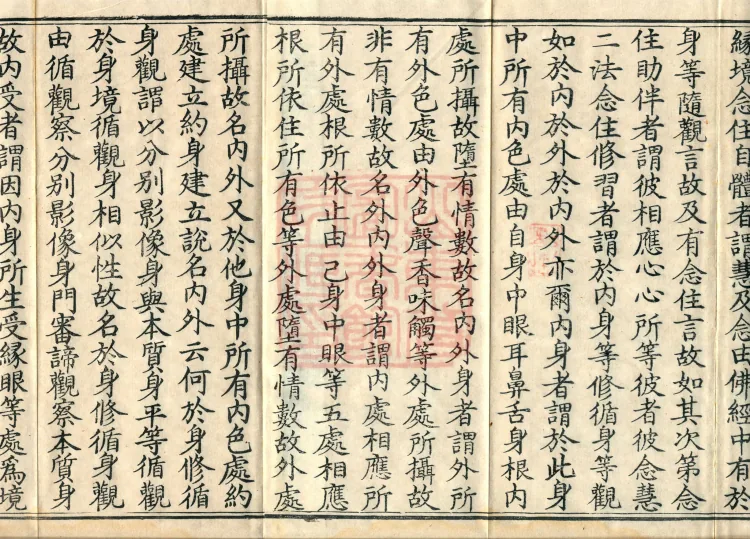 緣境念住自體者謂慧及念由佛經中有於
身等隨觀言故及有念住言故如其次第念
住助伴者謂彼相應心心所等彼者彼念慧
二法念住修習者謂於內身等修循身等觀
如於內於外於內外亦爾內身者謂於此身
中所有內色處由自身中眼耳鼻舌身根內
處所攝故墮有情數故名內外身者謂外所
有外色處由外色聲香味觸等外處所攝故
非有情數故名外內外身者謂內處相應所
有外處根所依止由己身中眼等五處相應
根所依住所有色等外處墮有情數故外處
所攝故名內外又於他身中所有內色處約
處建立約身建立說名內外云何於身修循
身觀謂以分別影像身與本質身平等循觀
於身境循觀身相似性故名於身修循身觀
由循觀察分別影像身門審諦觀察本質身
故內受者謂因內身所生受緣眼等處為境